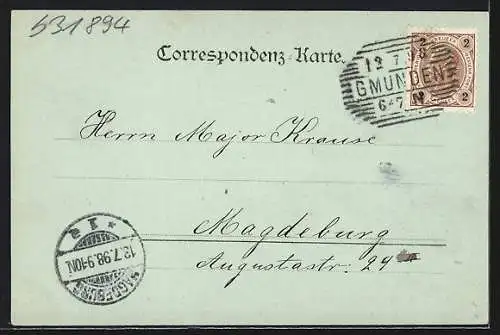 531894
Correspondenz-Karte.
12 7 98
GMUNDEN
6-7 N
2 2
2 2
Herrn Major Krause
Magdeburg
Augustastr. 24
MAGDEBURG
13.7.98.9-10N.
* 1 a